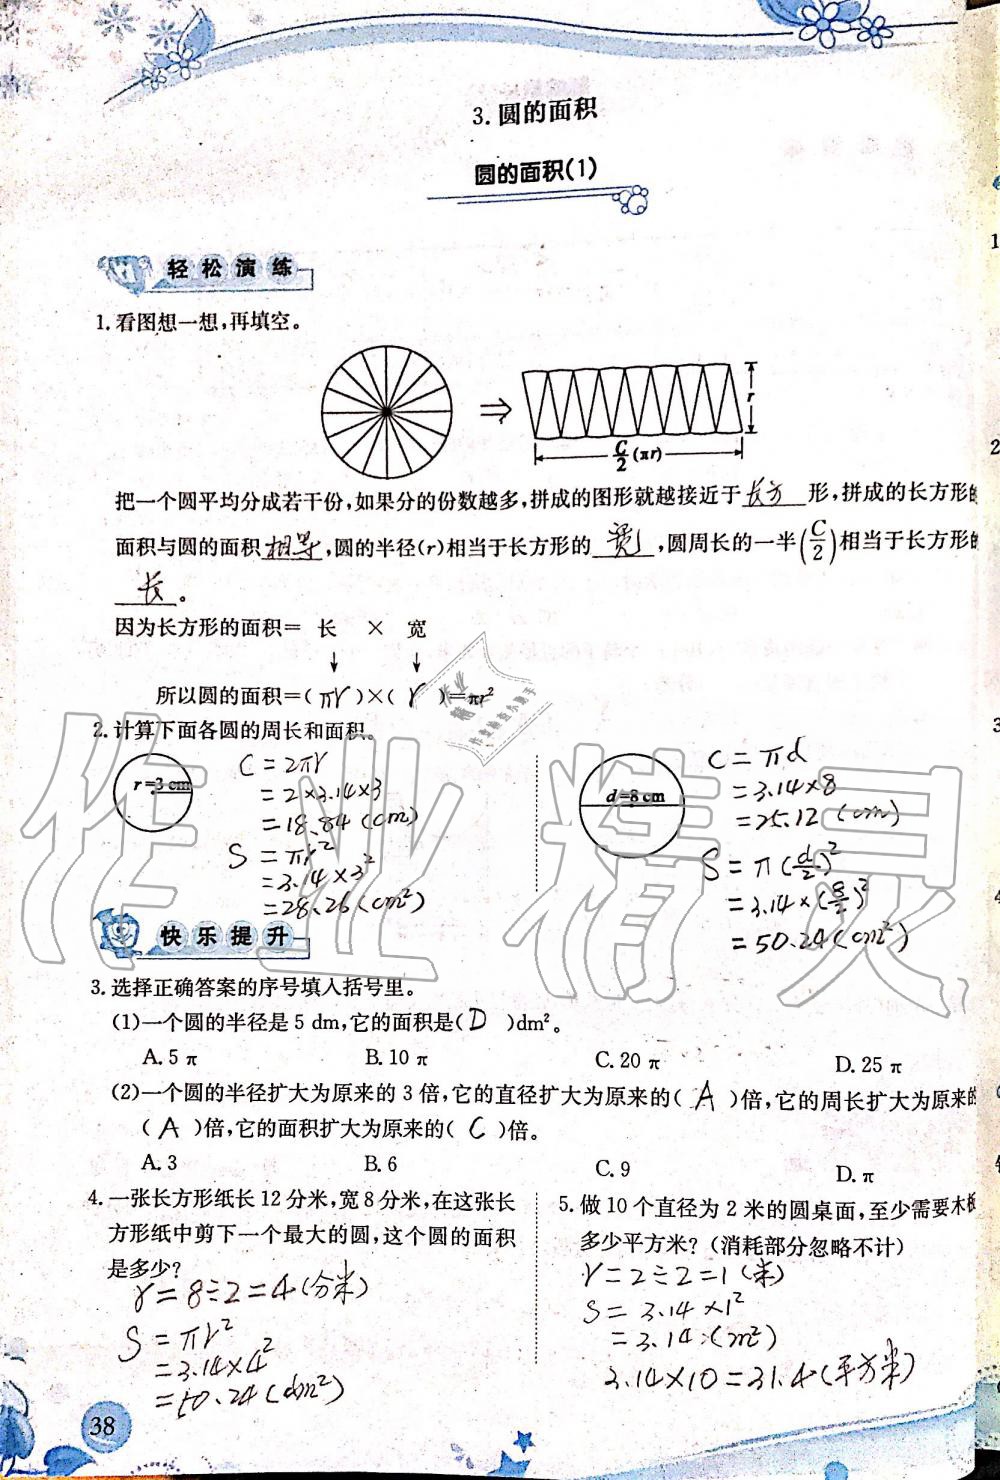 3.圆的面积
圆的面积(1)
轻松演练
1.看图想一想,再填空。
r
C/2 (πr)
把一个圆平均分成若干份,如果分的份数越多,拼成的图形就越接近于 长方 形,拼成的长方形的
面积与圆的面积 相等 ,圆的半径(r)相当于长方形的 宽 ,圆周长的一半(C/2)相当于长方形的
长 。
因为长方形的面积= 长 × 宽
↓ ↓
所以圆的面积=( πr )×( r )=πr²
2.计算下面各圆的周长和面积。
r=3 cm
C=2πr
=2×3.14×3
=18.84(cm)
S=πr²
=3.14×3²
=28.26(cm²)
d=8 cm
C=πd
=3.14×8
=25.12(cm)
S=π(d/2)²
=3.14×(8/2)²
=50.24(cm²)
快乐提升
3.选择正确答案的序号填入括号里。
(1)一个圆的半径是 5 dm,它的面积是( D )dm²。
A. 5 π B. 10 π C. 20 π D. 25 π
(2)一个圆的半径扩大为原来的 3 倍,它的直径扩大为原来的( A )倍,它的周长扩大为原来的
( A )倍,它的面积扩大为原来的( C )倍。
A. 3 B. 6 C. 9 D. π
4.一张长方形纸长 12 分米,宽 8 分米,在这张长
方形纸中剪下一个最大的圆,这个圆的面积
是多少?
r=8÷2=4(分米)
S=πr²
=3.14×4²
=50.24(dm²)
5.做 10 个直径为 2 米的圆桌面,至少需要木板
多少平方米?(消耗部分忽略不计)
r=2÷2=1(米)
S=3.14×1²
=3.14(m²)
3.14×10=31.4(平方米)
38
作业精灵